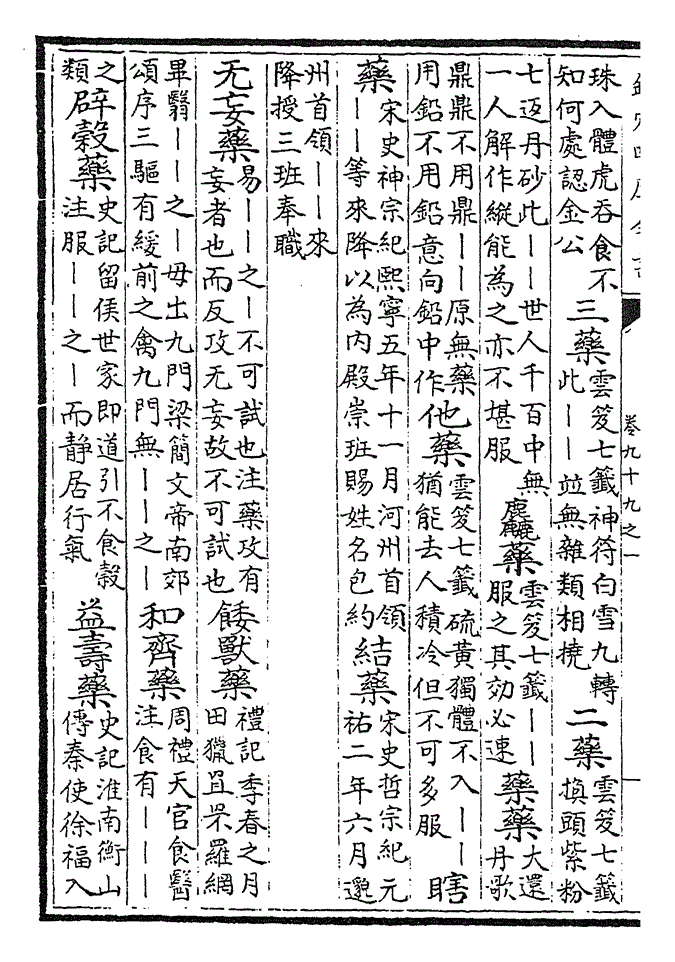 卷九十九之一
一
珠入體虎吞食不
知何處認金公
三藥
雲笈七籤神符白雪九轉
此丨丨竝無雜類相撓
二藥
雲笈七籤
換頭紫粉
七返丹砂此丨丨世人千百中無
一人解作縱能為之亦不堪服
麤藥
雲笈七籤丨丨
服之其効必速
藥藥
大還
丹歌
鼎鼎不用鼎丨丨原無藥
用鉛不用鉛意向鉛中作
他藥
雲笈七籤硫黃獨體不入丨丨
猶能去人積冷但不可多服
瞎
藥
宋史神宗紀熙寧五年十一月河州首領
丨丨等來降以為内殿崇班賜姓名包約
結藥
宋史哲宗紀元
祐二年六月邈
州首領丨丨來
降授三班奉職
无妄藥
易丨丨之丨不可試也注藥攻有
妄者也而反攻无妄故不可試也
餧獸藥
禮記季春之月
田獵罝罘羅網
畢翳丨丨之丨毋出九門梁簡文帝南郊
頌序三驅有緩前之禽九門無丨丨之丨
和齊藥
周禮天官食醫
注食有丨丨丨
之
類
辟穀藥
史記留侯世家即道引不食穀
注服丨丨之丨而静居行氣
益壽藥
史記淮南衡山
傳秦使徐福入